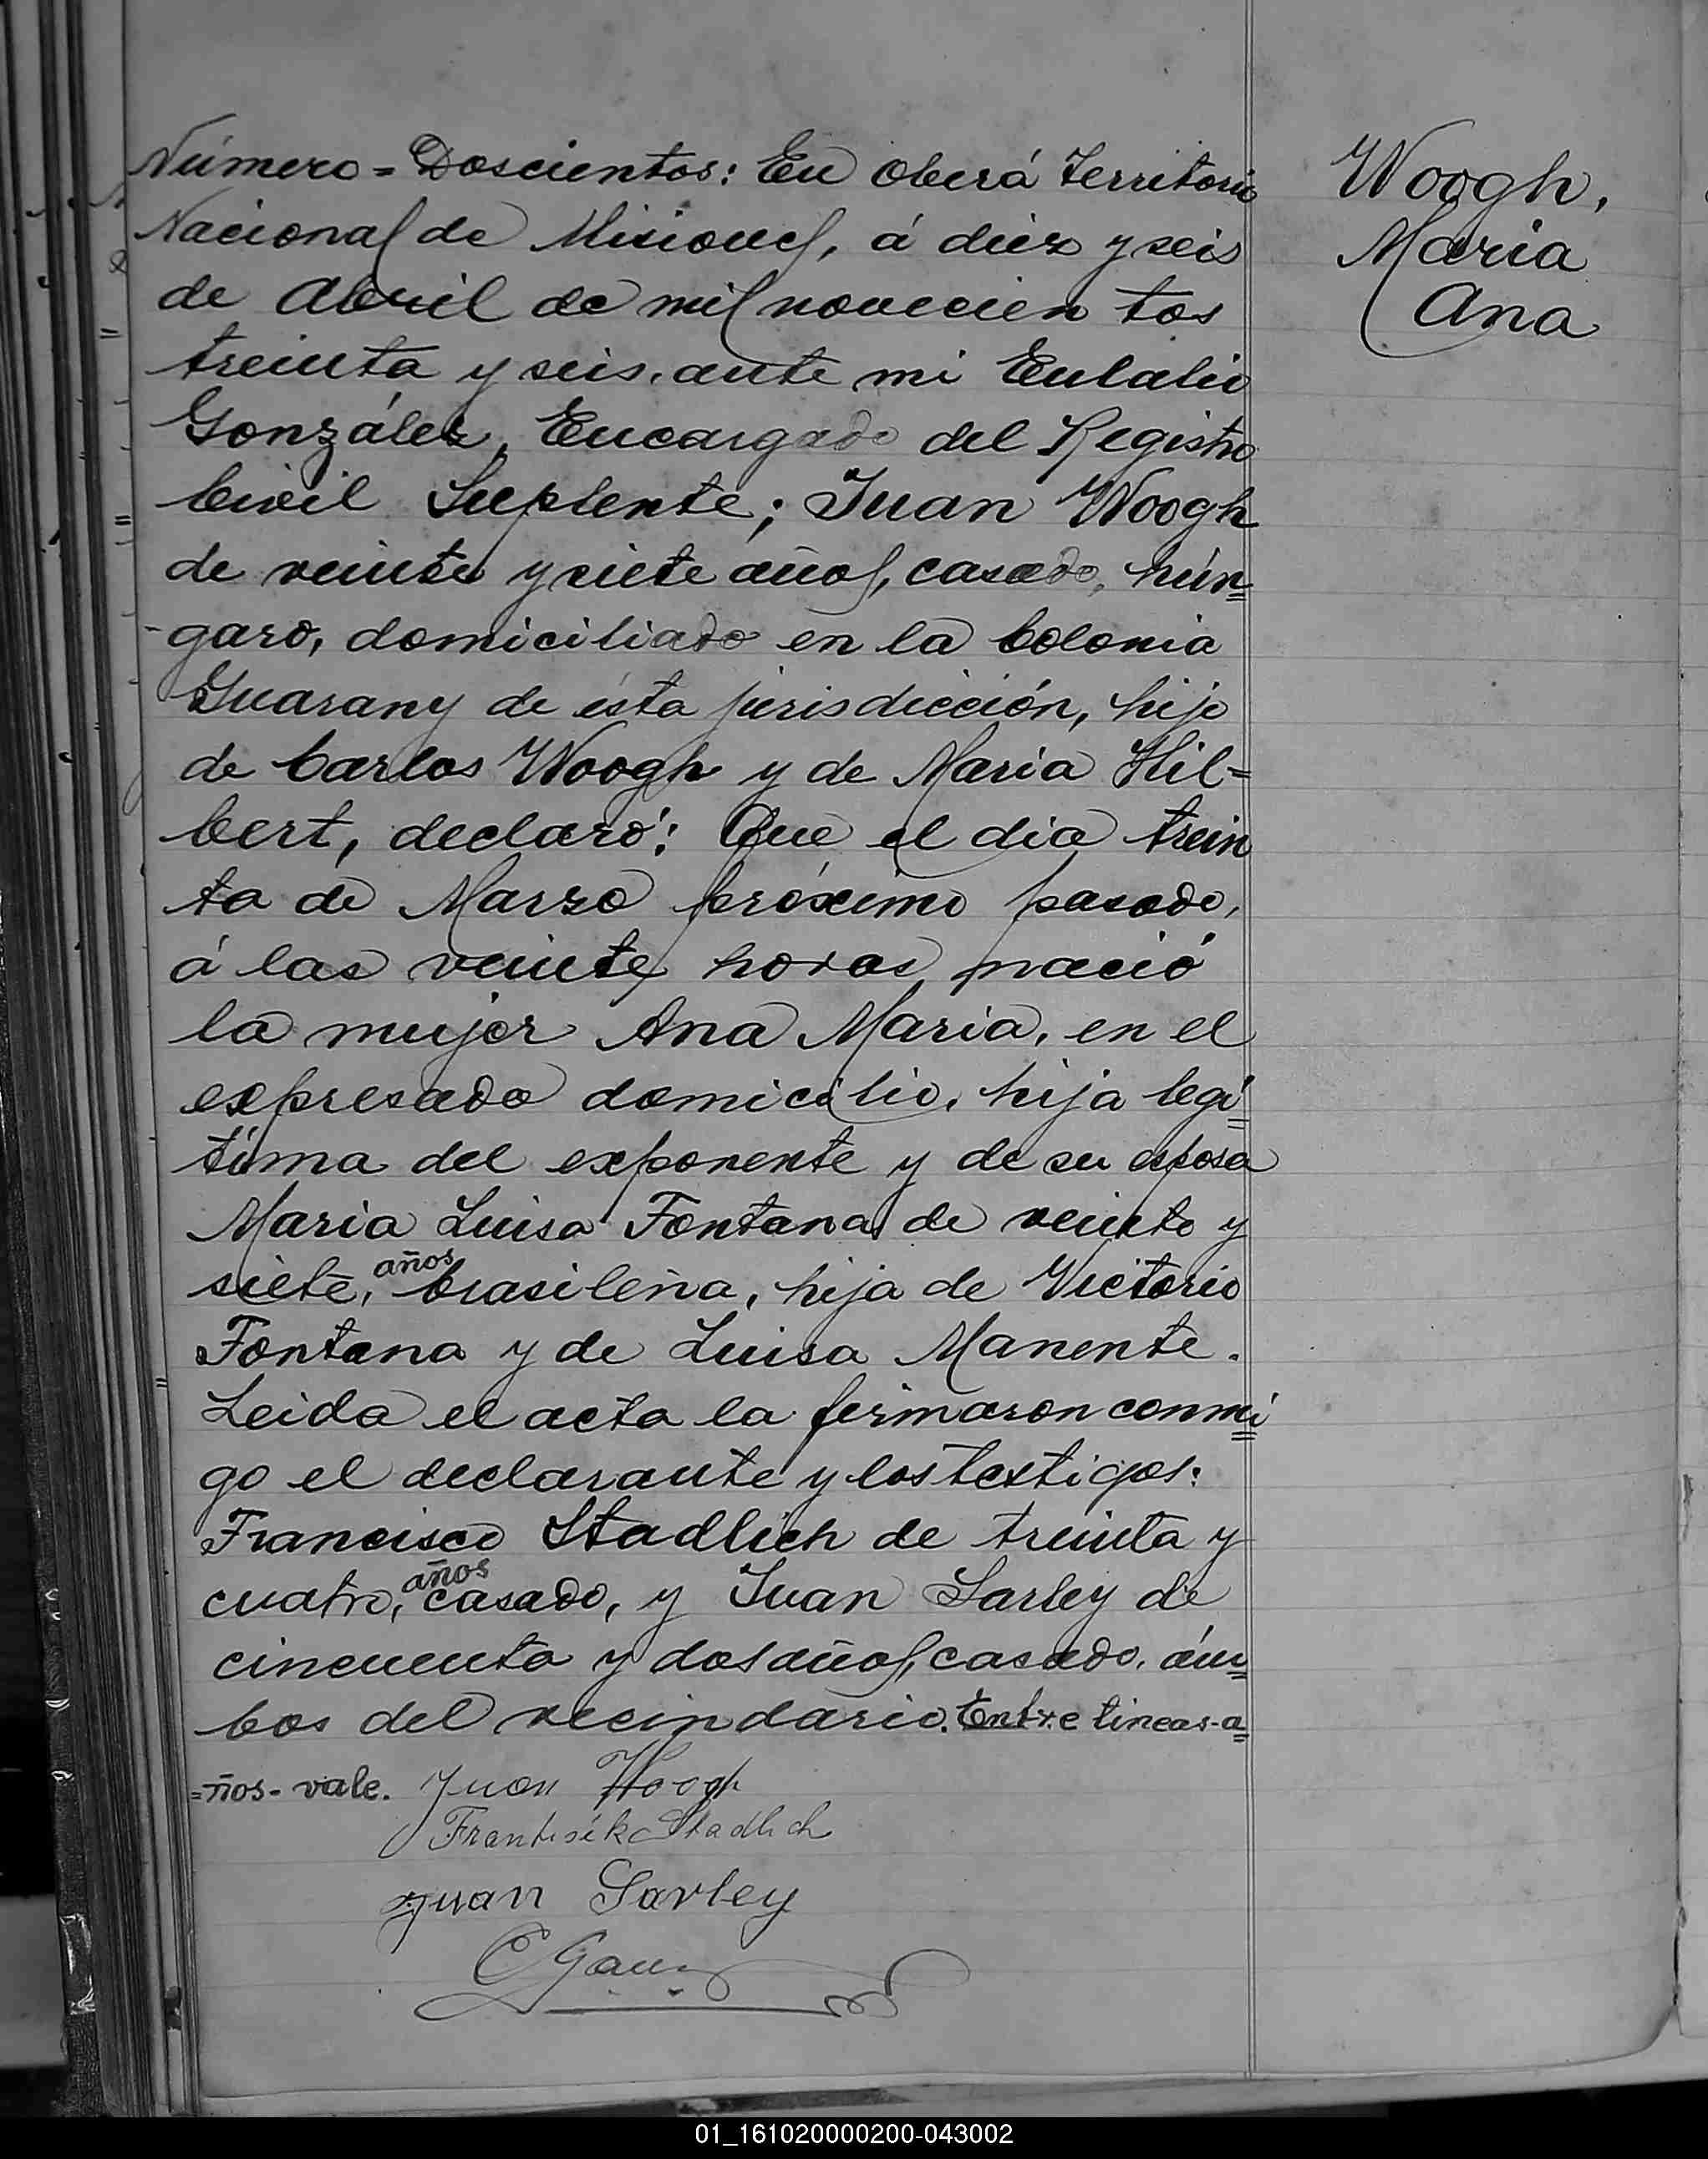 Número = Doscientos: En Oberá Territorio
Nacional de Misiones, á diez y seis
de Abril de mil novecien tos
treinta y seis, ante mi Eulalio
González, Encargado del Registro
Civil Suplente; Juan Woogh
de veinte y siete años, casado, hún=
garo, domiciliado en la Colonia
Guarany de ésta jurisdicción, hijo
de Carlos Woogh y de Maria Hil=
bert, declaró: Que el dia trein
ta de Marzo próximo pasado,
á las veinte horas nació
la mujer Ana Maria, en el
expresado domicilio, hija legí=
tima del exponente y de su esposa
Maria Luisa Fontana de veinte y
siete, años brasileña, hija de Victorio
Fontana y de Luisa Manente.
Leida el acta la firmaron conmi=
go el declarante y los testigos:
Francisco Stadlich de treinta y
cuatro, años casado, y Juan Sarley de
cincuenta y dos años, casado, ám=
bos del vecindario. Entre lineas-a=
=ños- vale. Juan Woogh
Frantisék Stadlich
Juan Sarley
Woogh,
Maria
Ana
01_161020000200-043002